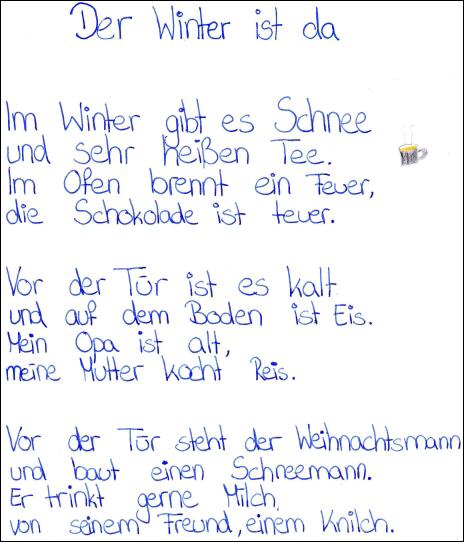 Der Winter ist da
Im Winter gibt es Schnee
und sehr heißen Tee.
Im Ofen brennt ein Feuer,
die Schokolade ist teuer.
Vor der Tür ist es kalt
und auf dem Boden ist Eis.
Mein Opa ist alt,
meine Mutter kocht Reis.
Vor der Tür steht der Weihnachtsmann
und baut einen Schneemann.
Er trinkt gerne Milch,
von seinem Freund, einem Knilch.